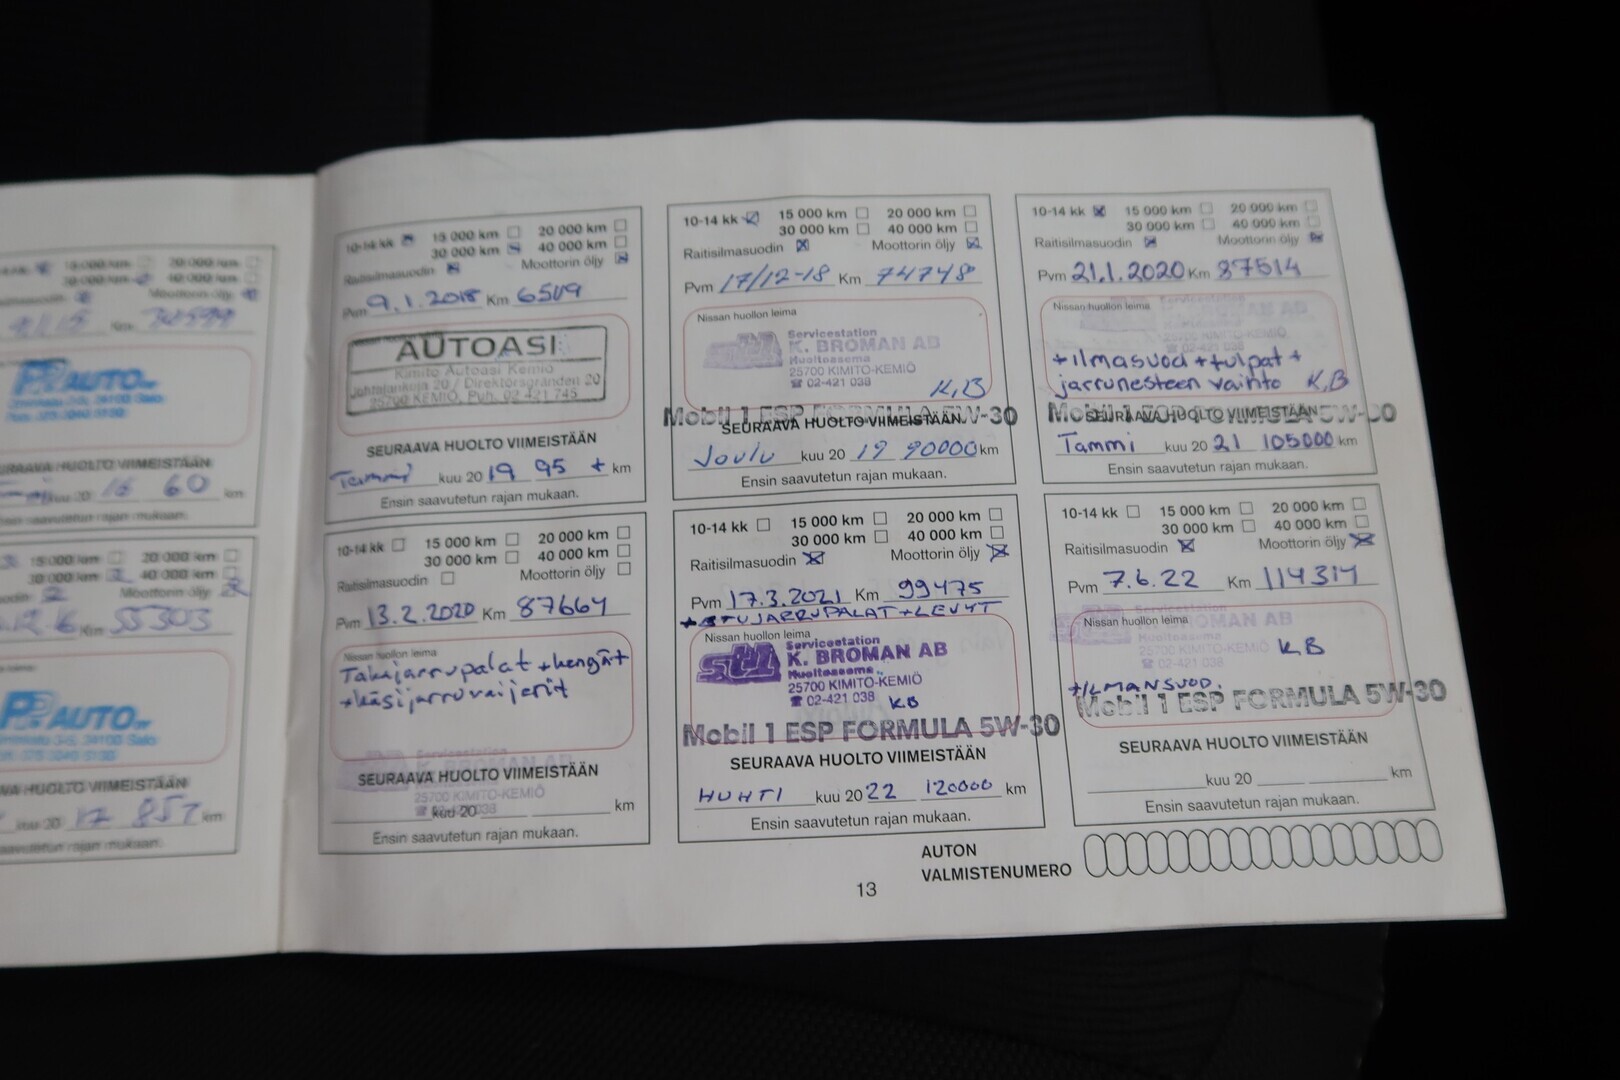 15 000 km 20 000 km
40 000 km
Moottorin öljy
AUTO
60 km
15 000 km 20 000 km
30 000 km 40 000 km
Moottorin öljy
Km 55303
AUTO
17 857 km
10-14 kk 15 000 km 20 000 km
30 000 km 40 000 km
Raitisilmasuodin Moottorin öljy
Pvm 9.1.2018 Km 6519
AUTOASI
Kimito Autoasi Kemiö
Johtajankuja 20 / Direktörsgränden 20
25700 KEMIÖ, Puh. 02 421 745
SEURAAVA HUOLTO VIIMEISTÄÄN
Tammi kuu 2019 95 + km
Ensin saavutetun rajan mukaan.
10-14 kk 15 000 km 20 000 km
30 000 km 40 000 km
Raitisilmasuodin Moottorin öljy
Pvm 17/12-18 Km 74748
Nissan huollon leima
Servicestation
K. BROMAN AB
Huoltoasema
25700 KIMITO-KEMIÖ
☎ 02-421 038
K,B
Mobil 1 ESP FORMULA 5W-30
SEURAAVA HUOLTO VIIMEISTÄÄN
Joulu kuu 20 19 90000 km
Ensin saavutetun rajan mukaan.
10-14 kk 15 000 km 20 000 km
30 000 km 40 000 km
Raitisilmasuodin Moottorin öljy
Pvm 21.1.2020 Km 87514
Nissan huollon leima
+ilmasuod+tulpat+
jarrunesteen vaihto K,B
Mobil 1 ESP FORMULA 5W-30
SEURAAVA HUOLTO VIIMEISTÄÄN
Tammi kuu 20 21 105000 km
Ensin saavutetun rajan mukaan.
10-14 kk 15 000 km 20 000 km
30 000 km 40 000 km
Raitisilmasuodin Moottorin öljy
Pvm 13.2.2020 Km 87664
Nissan huollon leima
Takajarrupalat +kengät
+käsijarruvaijerit
SEURAAVA HUOLTO VIIMEISTÄÄN
25700 KIMITO-KEMIÖ
kuu 20 km
Ensin saavutetun rajan mukaan.
10-14 kk 15 000 km 20 000 km
30 000 km 40 000 km
Raitisilmasuodin Moottorin öljy
Pvm 17.3.2021 Km 99475
+ETUJARRUPALAT+LEVYT
Nissan huollon leima
Servicestation
K. BROMAN AB
Huoltoasema
25700 KIMITO-KEMIÖ
☎ 02-421 038 K.B
Mobil 1 ESP FORMULA 5W-30
SEURAAVA HUOLTO VIIMEISTÄÄN
HUHTI kuu 20 22 120000 km
Ensin saavutetun rajan mukaan.
10-14 kk 15 000 km 20 000 km
30 000 km 40 000 km
Raitisilmasuodin Moottorin öljy
Pvm 7.6.22 Km 114314
Servicestation
Nissan huollon leima
K. BROMAN AB
Huoltoasema
25700 KIMITO-KEMIÖ K.B
☎ 02-421 038
+ILMANSUOD.
Mobil 1 ESP FORMULA 5W-30
SEURAAVA HUOLTO VIIMEISTÄÄN
kuu 20 km
Ensin saavutetun rajan mukaan.
AUTON
VALMISTENUMERO
13